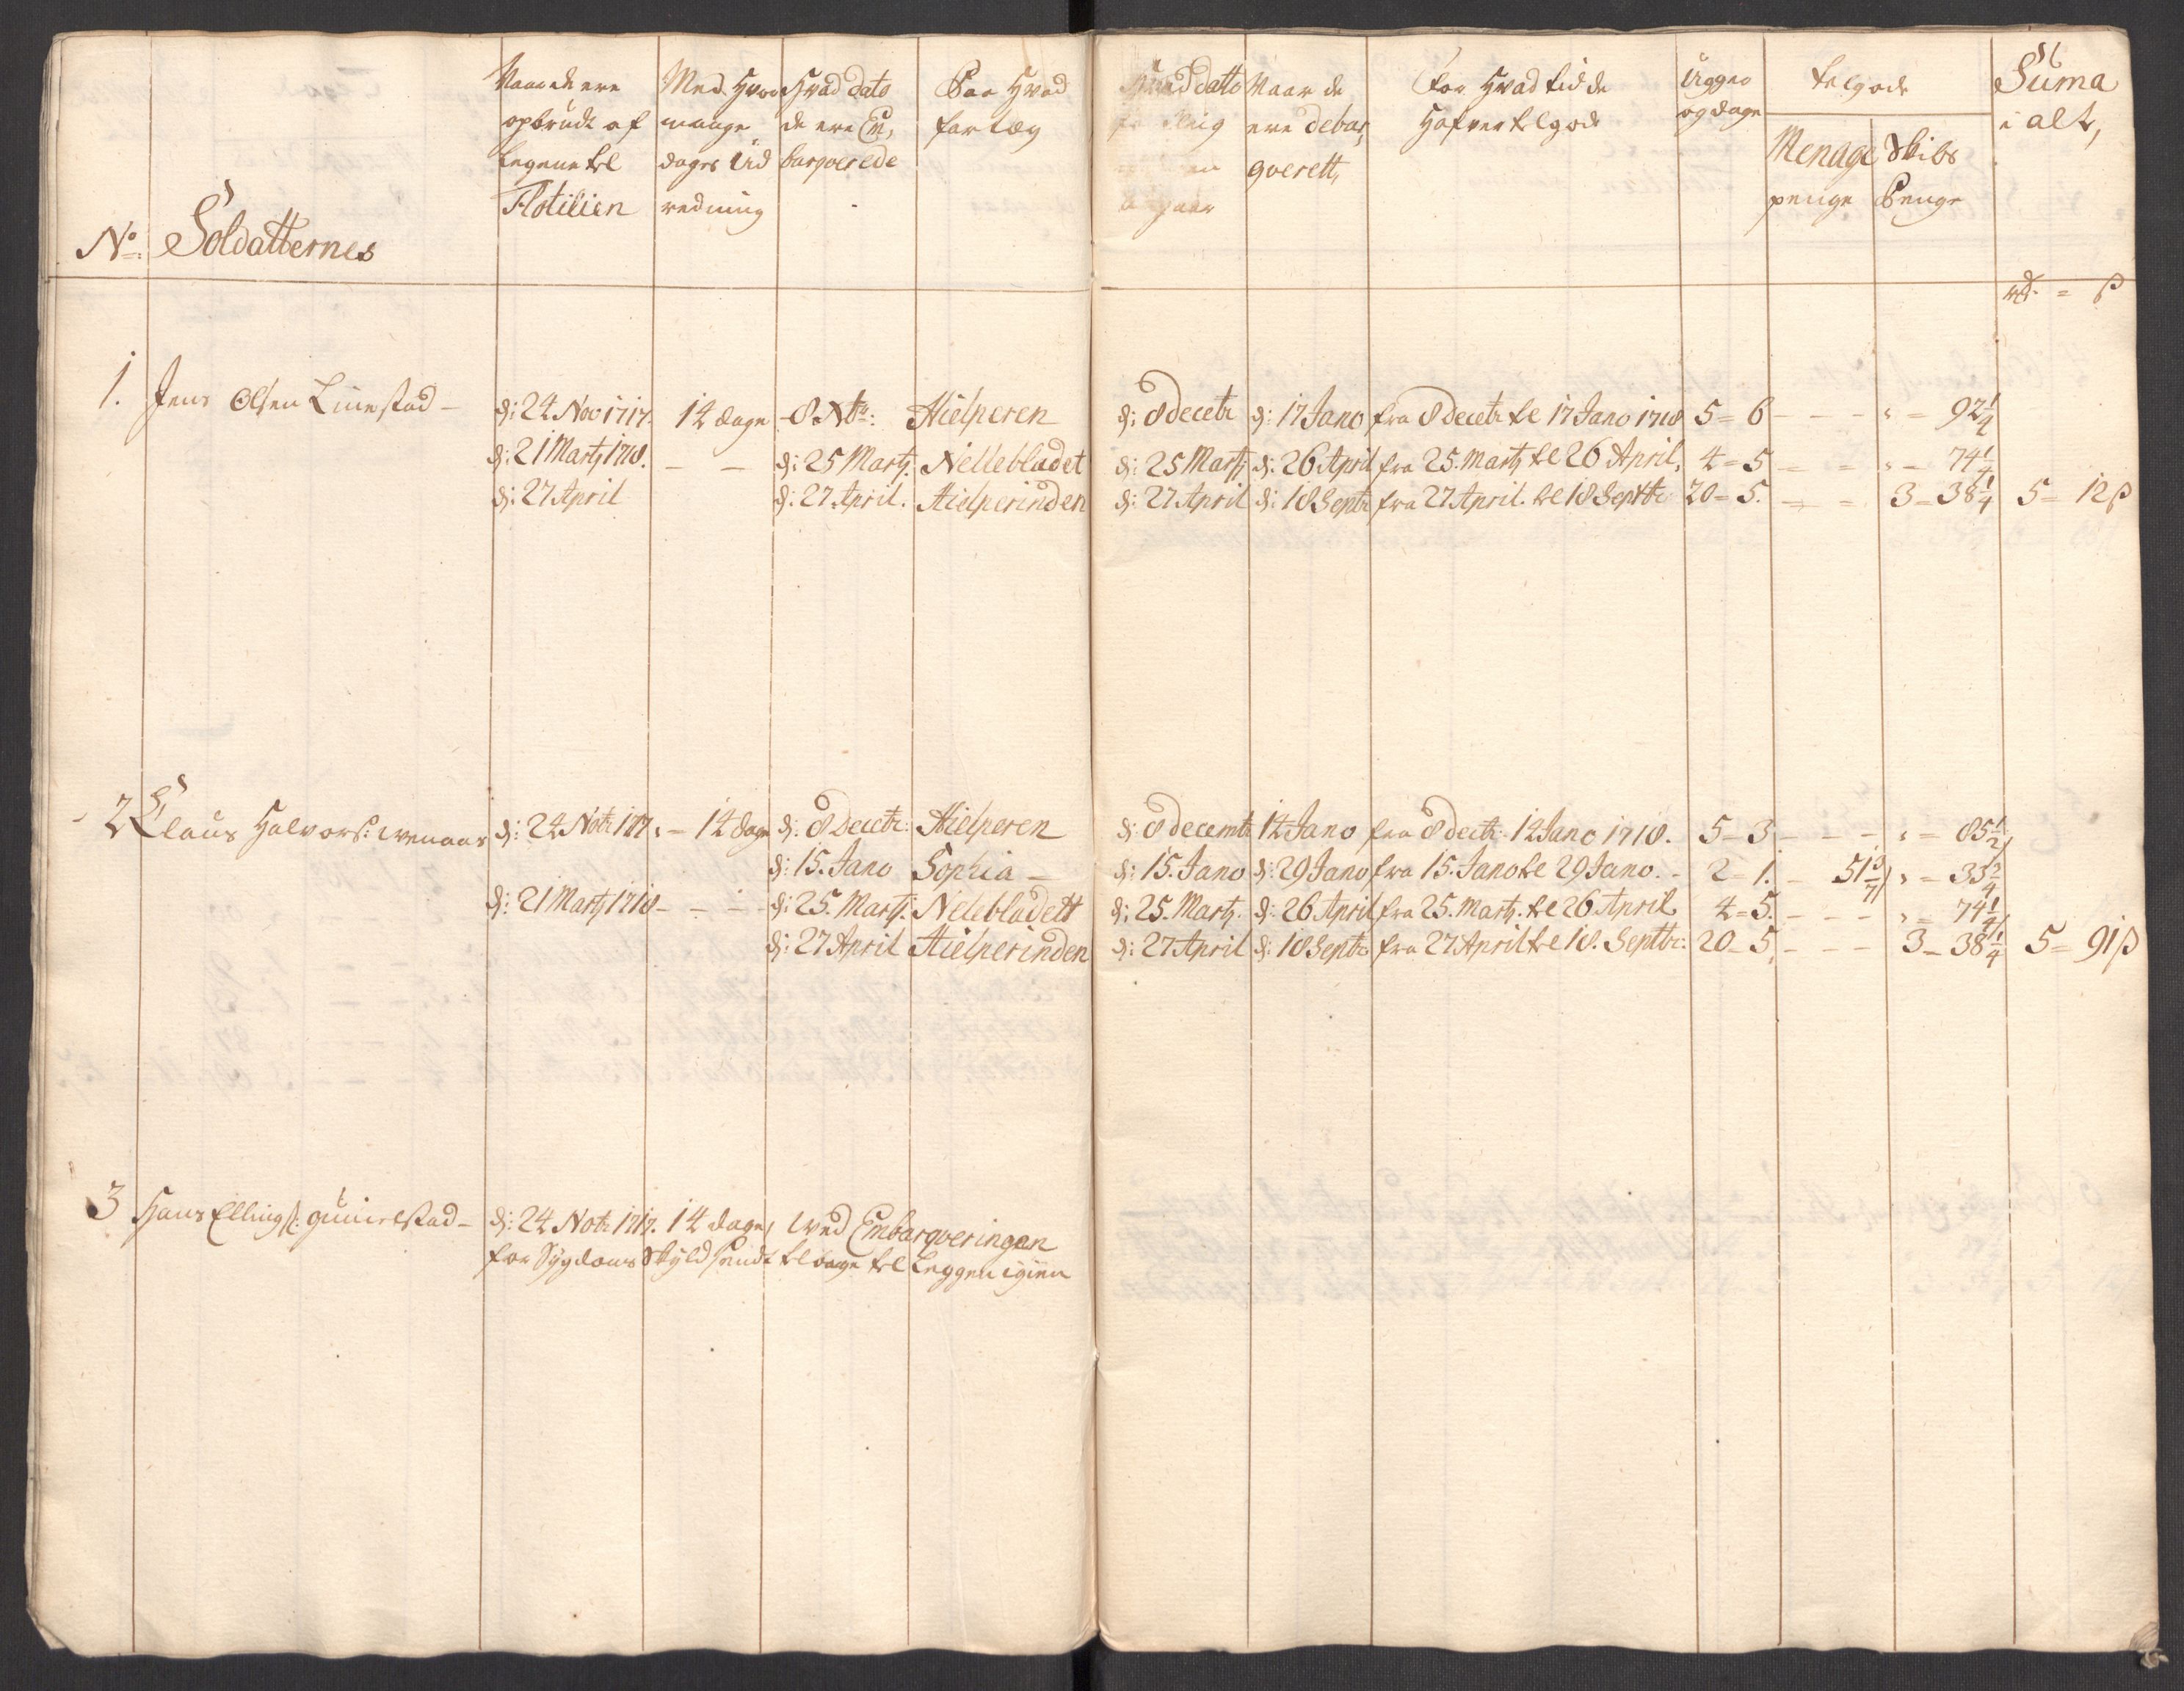 No: Soldatternes
Naar de ere
opbrudt af
legene til
Flotilien
Med Hvor
mange
dages Ud
redning
Hvad dato
de ere Em,
barqverede
Paa Hvad
fartøy
Hvad datto
Naar de
ere debar,
qverett,
For Hvad tid de
Hafver tilgode
Ugger
og dage
tilgode
Menage
penge
Skibs
Penge
Suma
i alt,
rd. = ß
1. Jens Olsen Linestad - d: 24 Nov 1717. 14 dage - 8 Xbr: Hielperen d: 8 decebr d: 17 Jano fra 8 decebr til 17 Jano 1718 5 = 6 - - - " = 92 1/4
d: 21 Marty 1718. - - d: 25 Marty. Nellebladet d: 25 Marty d: 26 April fra 25. Marty til 26 April, 4 = 5 - = " - 74 1/4
d: 27 April d: 27. April. Hielperinden d: 27 April d: 18 Septr fra 27 April. til 18 Septbr 20 = 5. - = 3 = 38 1/4 5 = 12 ß
2 Claus Halvors: Wenaas d: 24 Nobr 1717, - 14 dage d: 8 Decebr: Hielperen d: 8 decembr 12 Jano fra 8 decbr: 12 Jano 1718. 5 - 3 - - - " = 85 1/2
d: 15. Jano Sophia - d: 15. Jano d: 29 Jano fra 15. Jano til 29 Jano. - 2 = 1. - 51 3/7 " - 35 2/4
d: 21 Marty 1718 - - - d: 25. Marty. Nelebladett d: 25. Marty. d: 26 April fra 25. Marty. til 26 April 4 = 5. - - - " = 74 1/4
d: 27 April Hielperinden d: 27 April d: 18 Septr fra 27 April til 18. Septbr: 20 - 5, - - - 3 - 38 1/4 5 = 91 ß
3 Hans Ellings: gunerstad - d: 24 Nobr 1717. 14 dage, Wed Embarqveringen
for Sygdoms Skyld sendt tilbage til Leggen igien